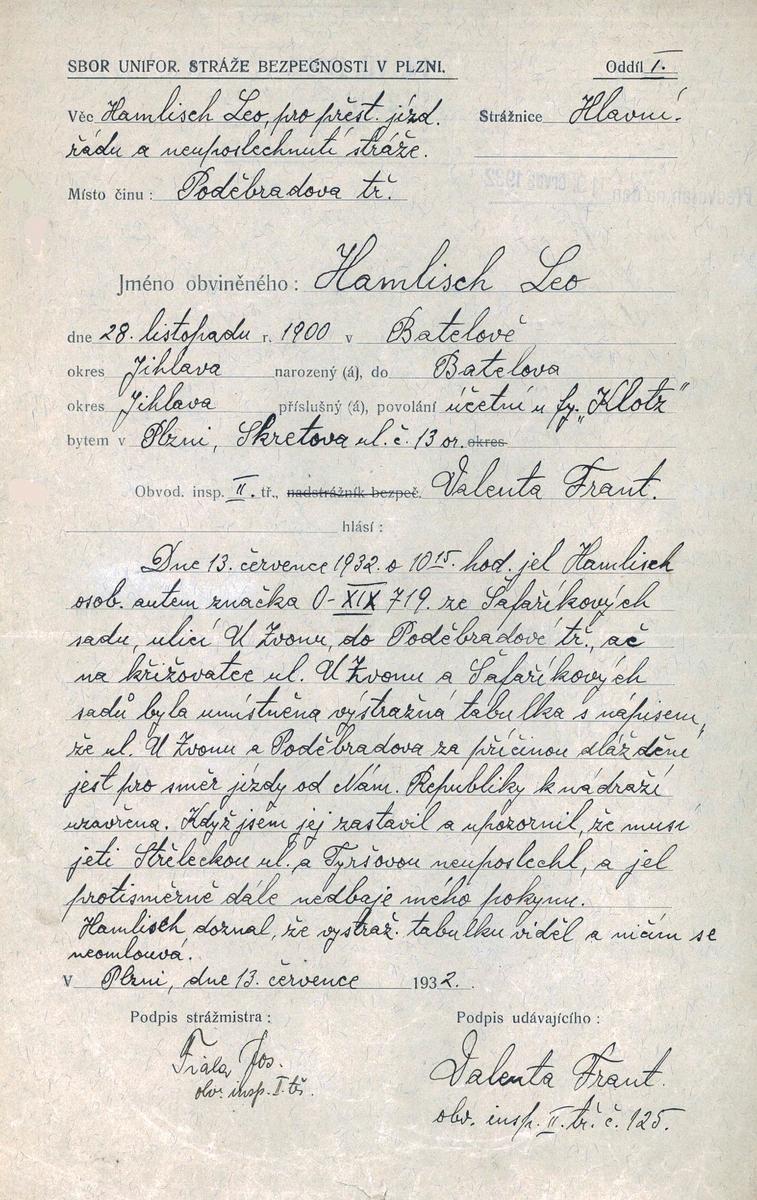 SBOR UNIFOR. STRÁŽE BEZPEČNOSTI V PLZNI. Oddíl I.
Věc Hamlisch Leo, pro přest. jízd. Strážnice Hlavní.
řádu a neuposlechnutí stráže.
Místo činu: Poděbradova tř.
Jméno obviněného: Hamlisch Leo
dne 28. listopadu r. 1900 v Batelově
okres Jihlava narozený (á), do Batelova
okres Jihlava příslušný (á), povolání účetní u fy. „Klotz"
bytem v Plzni, Skretova ul. č. 13 or. okres
Obvod. insp. II. tř., nadstrážník bezpeč. Valenta Frant.
hlásí:
Dne 13. července 1932 o 10 15. hod. jel Hamlisch
osob. autem značka O-XIX 719. ze Šafaříkových
sadu, ulicí U Zvonu, do Poděbradové tř., ač
na křižovatce ul. U Zvonu a Šafaříkových
sadů byla umístněna výstražná tabulka s nápisem,
že ul. U Zvonu a Poděbradova za příčinou dláždění
jest pro směr jízdy od Nám. Republiky k nádraží
uzavřena. Když jsem jej zastavil a upozornil, že musí
jeti Střeleckou ul. a Tyršovou neuposlechl, a jel
protisměrně dále nedbaje mého pokynu.
Hamlisch doznal, že vystraž. tabulku viděl a ničím se
neomlouvá.
V Plzni, dne 13. července 1932.
Podpis strážmistra: Podpis udávajícího:
Fiala Jos. Valenta Frant.
obv. insp. I. tř. obv. insp. II. tř. č. 125.